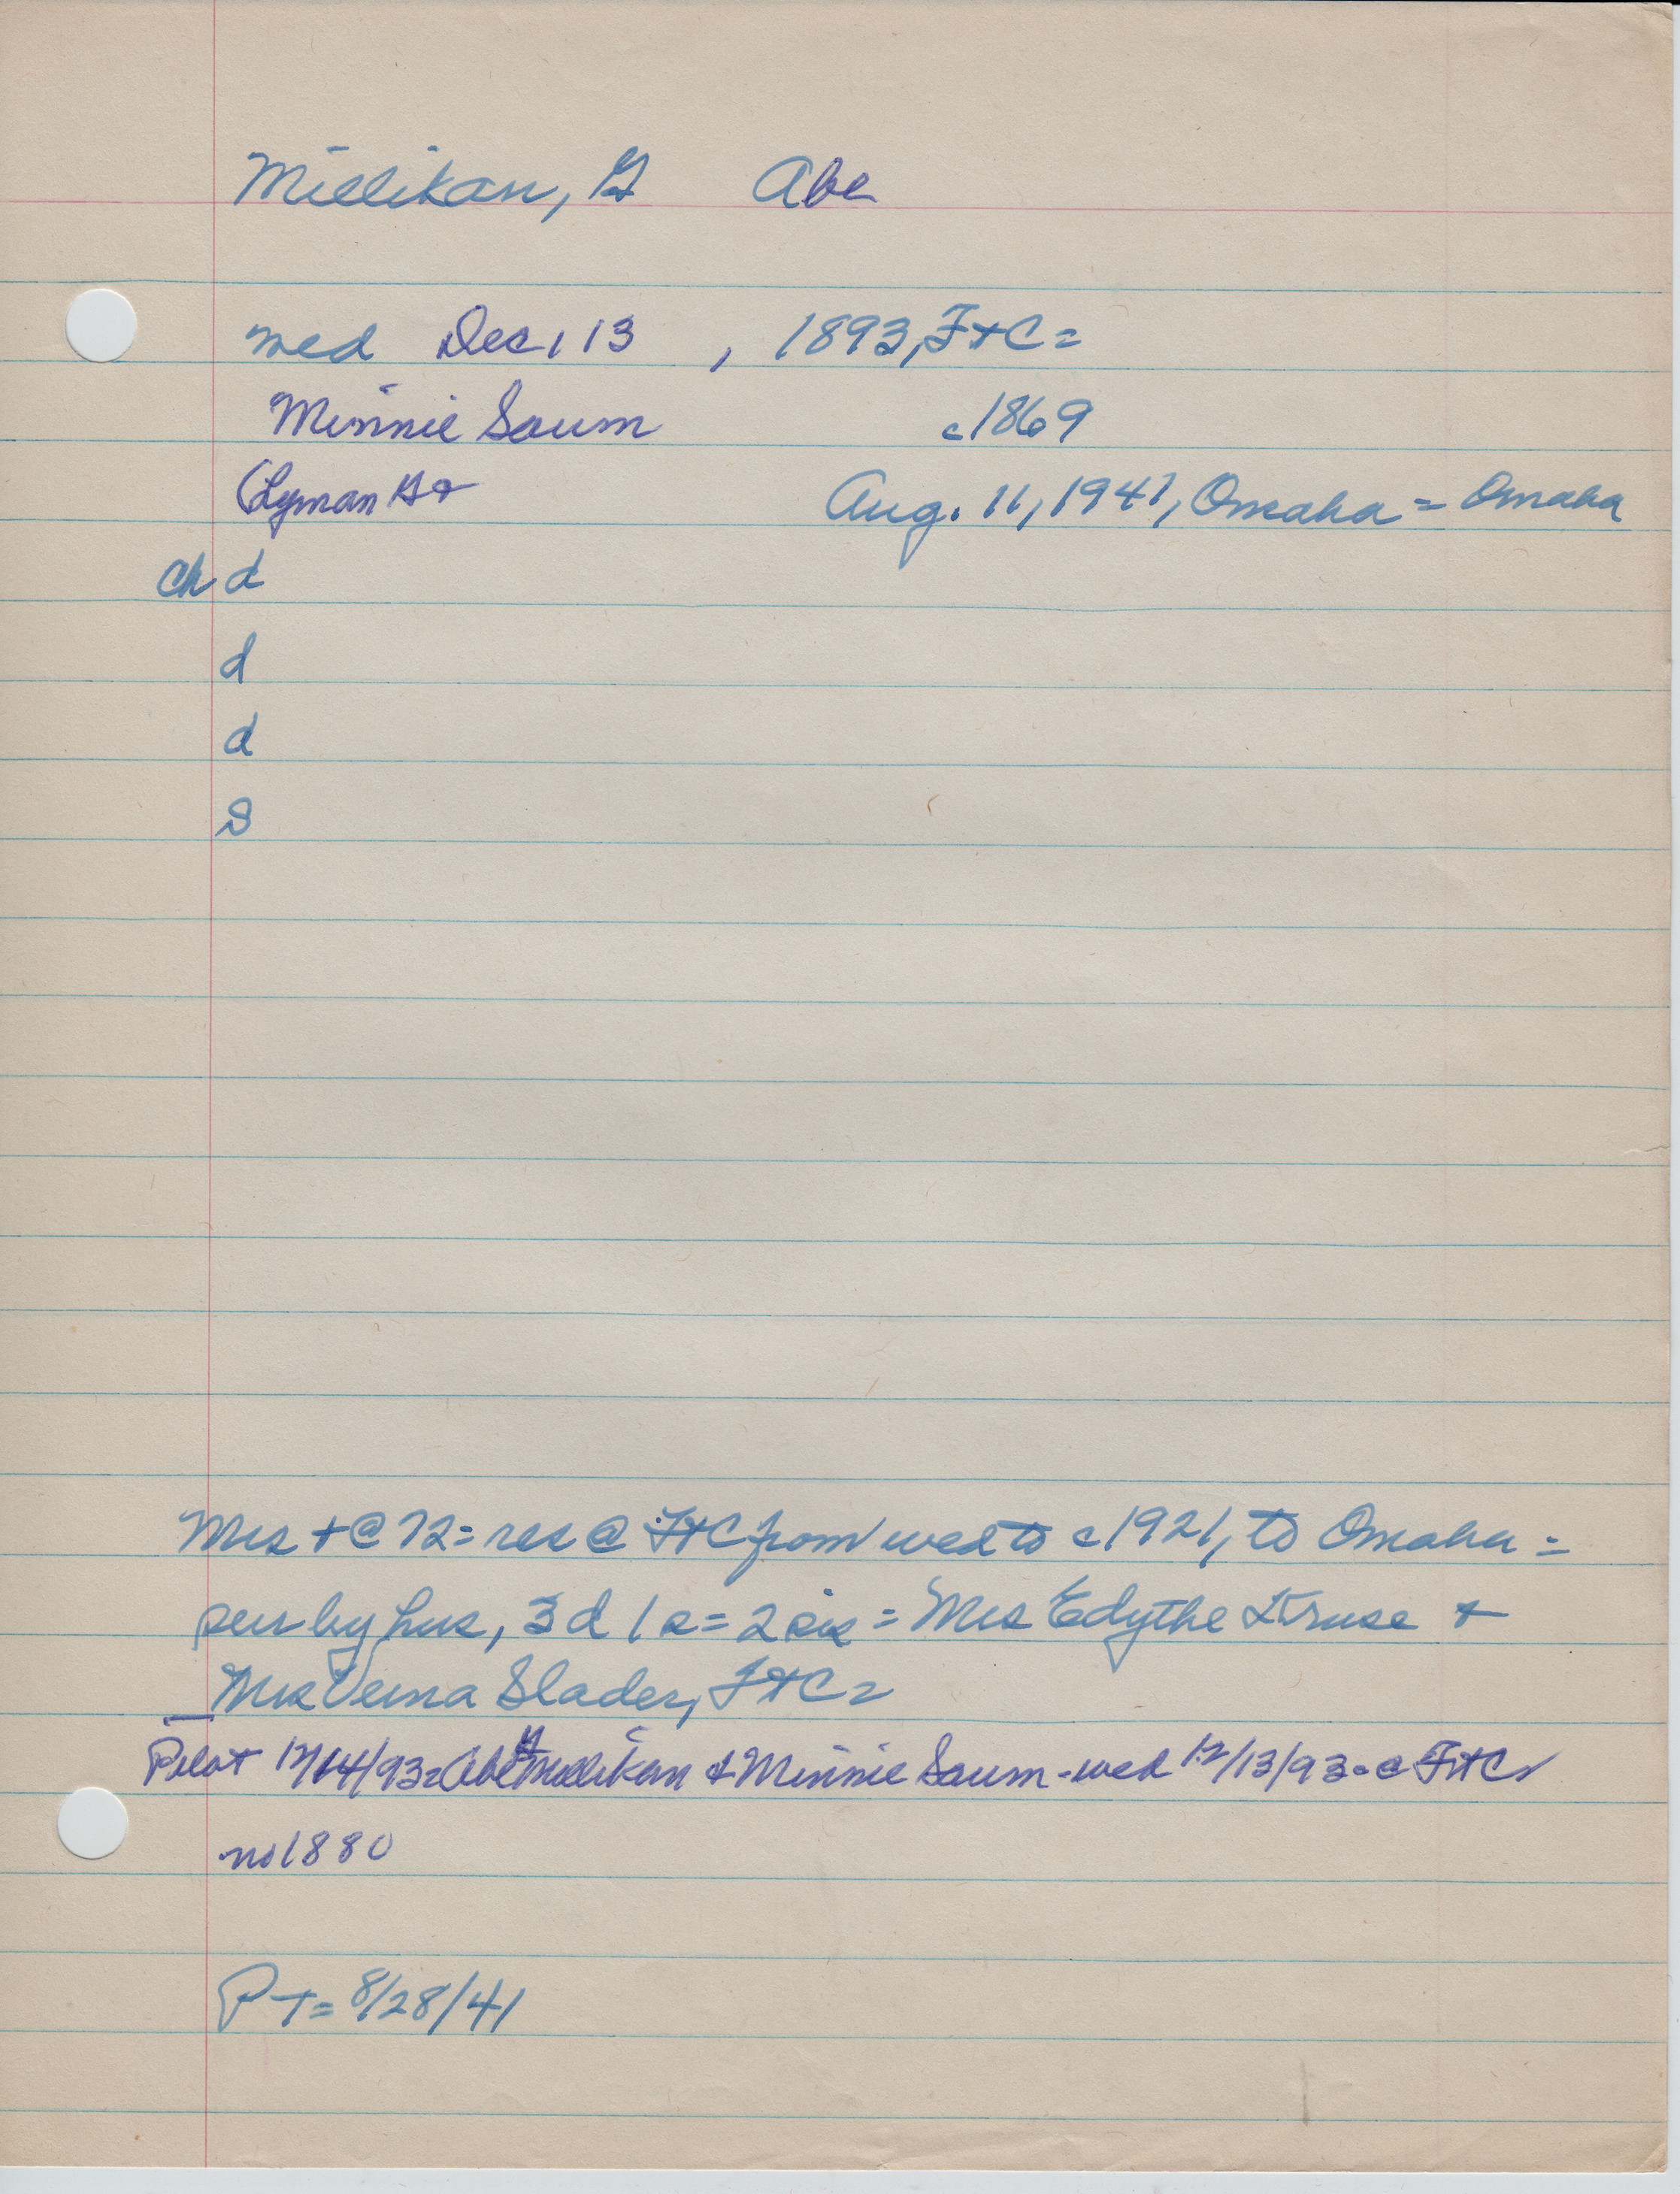 Millikan, G Abe
wed Dec, 13 , 1893, Ft C =
Minnie Saum c1869
(Lyman G + Aug. 11, 1941, Omaha = Omaha
Ch d
d
d
s
Mrs + @ 72 = res @ Ft C from wed to c1921, to Omaha =
sur by hus, 3 d 1 s = 2 sis = Mrs Edythe Kruse +
Mrs Verna Slader, Ft C =
Pilot 12/14/93 = Abe G Millikan & Minnie Saum - wed 12/13/93 = @ Ft C
no 1880
PT = 8/28/41